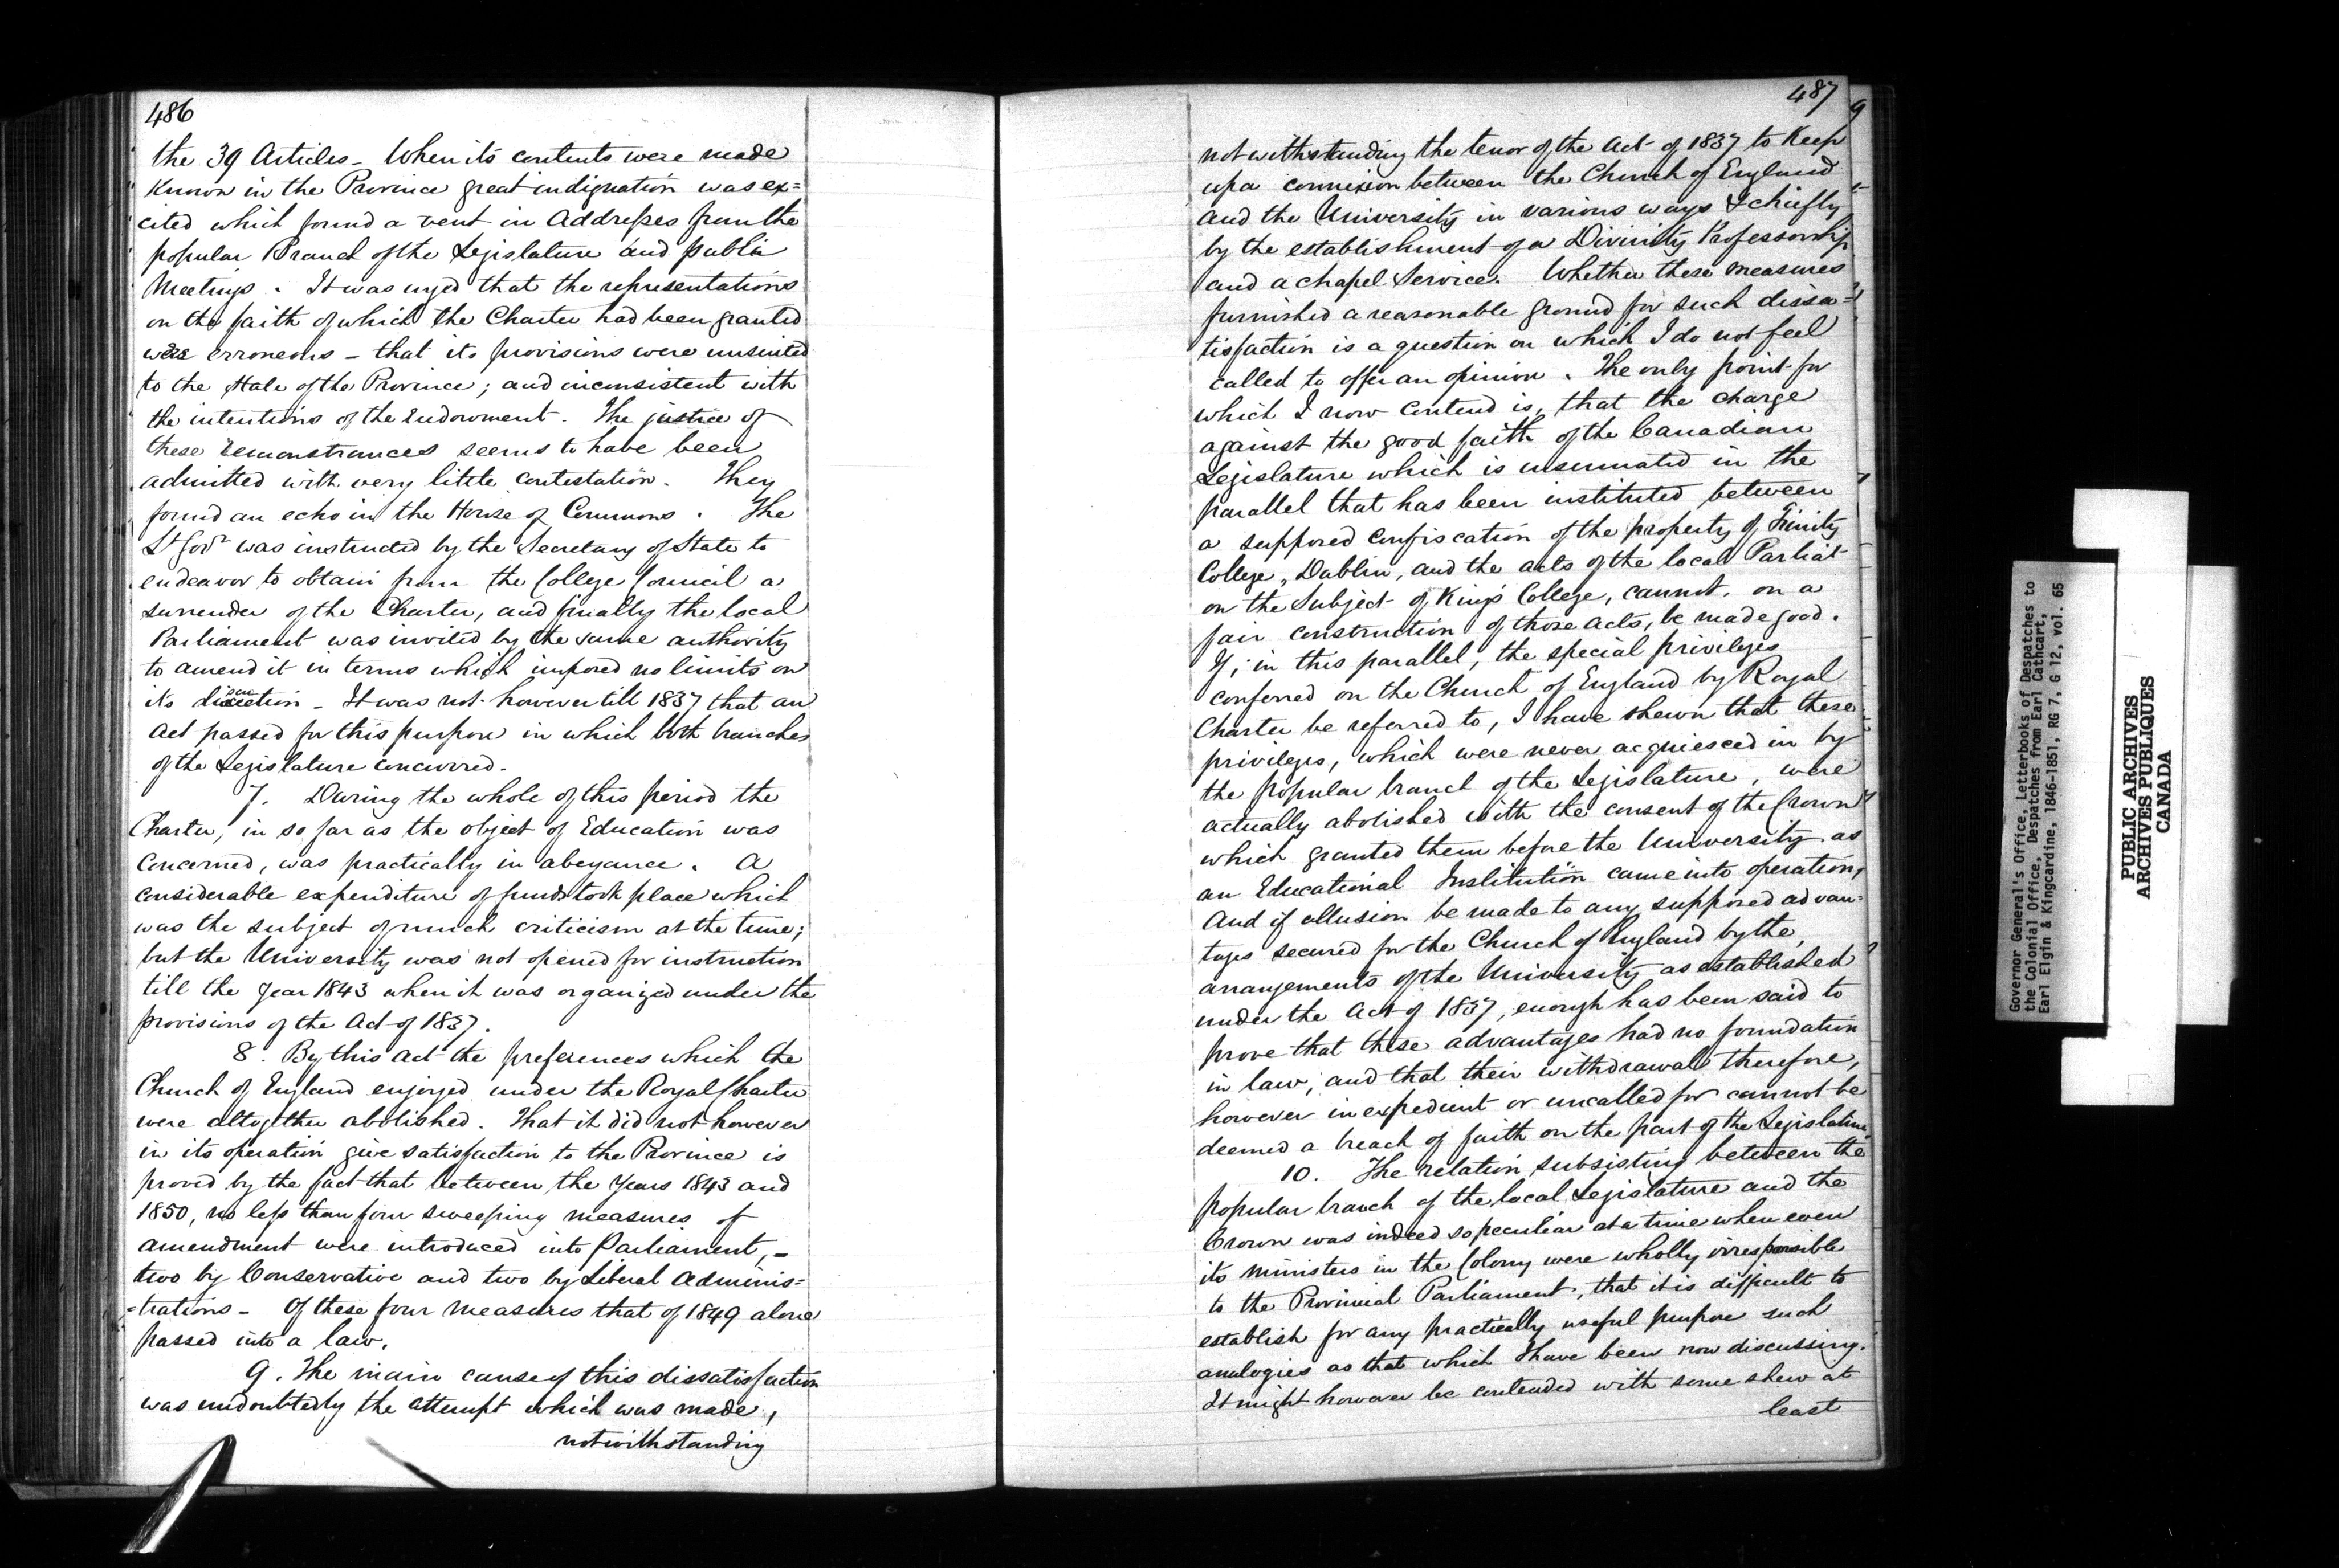 486
the 39 Articles - When its contents were made
Known in the Province great indignation was ex=
cited which found a vent in Addresses from the
popular Branch of the Legislature and public
Meetings. It was urged that the representations
on the faith of which the Charter had been granted
were erroneous - that its provisions were unsuited
to the state of the Province; and inconsistent with
the intentions of the Endowment. The justice of
these remonstrances seems to have been
admitted with very little contestation. They
found an echo in the House of Commons. The
Lt Govr was instructed by the Secretary of State to
endeavor to obtain from the College Council a
surrender of the Charter, and finally the local
Parliament was invited by the same authority
to amend it in terms which imposed no limits on
its discretion - It was not however till 1837 that an
Act passed for this purpose in which both branches
of the Legislature concurred.
7. During the whole of this period the
Charter, in so far as the object of Education was
concerned, was practically in abeyance. A
considerable expenditure of funds took place which
was the subject of much criticism at the time;
but the University was not opened for instruction
till the year 1843 when it was organized under the
provisions of the Act of 1837.
8. By this Act the preferences which the
Church of England enjoyed under the Royal Charter
were altogether abolished. That it did not however
in its operation give satisfaction to the Province is
proved by the fact that between the Years 1843 and
1850, no less than four sweeping measures of
amendment were introduced into Parliament, -
two by Conservative and two by Liberal Adminis=
=trations - Of these four measures that of 1849 alone
passed into a law.
9. The main cause of this dissatisfaction
was undoubtedly the attempt which was made,
notwithstanding
487
9
notwithstanding the tenor of the Act of 1837 to Keep
up a connixion between the Church of England
and the University in various ways & chiefly
by the establishment of a Divinity Professorship
and a chapel Service. Whether these measures
furnished a reasonable ground for such dissa=
tisfaction is a question on which I do not feel
called to offer an opinion. The only point for
which I now contend is, that the charge
against the good faith of the Canadian
Legislature which is insinuated in the
parallel that has been instituted between
a supposed confiscation of the property of Trinity
College, Dublin, and the acts of the local Parliat
on the Subject of King's College, cannot, on a
fair construction of those acts, be made good.
If, in this parallel, the special privileges
conferred on the Church of England by Royal
Charter be referred to, I have shewn that these
privileges, which were never acquiesced in by
the popular branch of the Legislature, were
actually abolished with the consent of the Crown
which granted them before the University as
an Educational Institution came into operation,
And if allusion be made to any supposed advan=
tages secured for the Church of England by the
arrangements of the University as established
under the Act of 1837, enough has been said to
prove that these advantages had no foundation
in law, and that their withdrawal therefore,
however inexpedient or uncalled for cannot be
deemed a breach of faith on the part of the Legislature
10. The relation subsisting between the
popular branch of the local Legislature and the
Crown was indeed so peculiar at a time when even
its ministers in the Colony were wholly irresponsible
to the Provincial Parliament, that it is difficult to
establish for any practically useful purpose such
analogies as that which I have been now discussing.
It might however be contended with some shew at
least
Governor General's Office, Letterbooks of Despatches to
the Colonial Office, Despatches from Earl Cathcart,
Earl Elgin & Kingcardine, 1846-1851, RG 7, G 12, vol. 65
PUBLIC ARCHIVES
ARCHIVES PUBLIQUES
CANADA